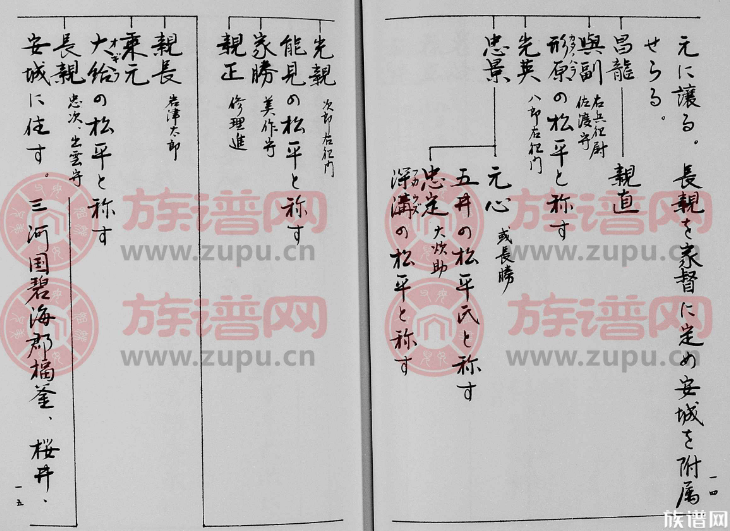 元に譲る。長親を家督に定め安城を附属
せらる。
昌龍
親直
與副 右兵衛尉 佐渡守
形原の松平と称す
光英 八郎右衛門
忠景
元心 或長勝
五井の松平氏と称す
忠定 大炊助
深溝の松平と称す
一四
光親 次郎右衛門
能見の松平と称す
家勝 美作守
親正 修理進
親長 岩津太郎
乗元
大給の松平と称す
長親 忠次、出雲守
安城に住す。三河国碧海郡福釜、桜井、
一五
族谱网
www.zupu.cn
族谱网
www.zupu.cn
族谱网
www.zupu.cn
族谱网
www.zupu.cn
族谱网